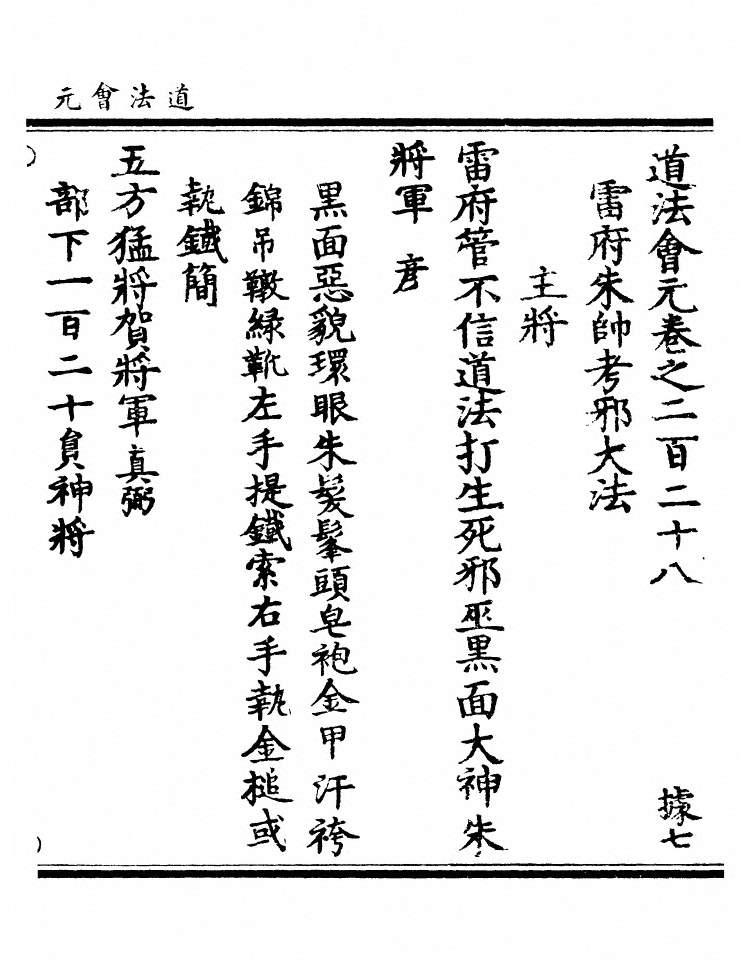 道法會元
道法會元卷之二百二十八 據七
雷府朱帥考邪大法
主將
雷府管不信道法打生死邪巫黑面大神朱
將軍 彥
黑面惡貌環眼朱髮髼頭皂袍金甲汗袴
錦吊䩞綠靴左手提鐵索右手執金槌或
執鐵簡
五方猛將賀將軍真弼
部下一百二十員神將